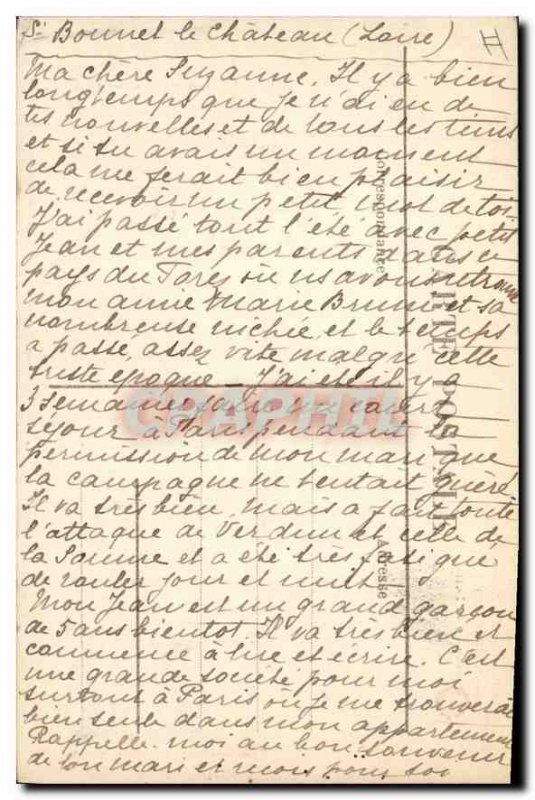 St Bonnet le Château (Loire)
II
Ma chère Suzanne, Il y a bien
longtemps que je n'ai eu de
tes nouvelles et de tous les tiens
et si tu avais un moment
cela me ferait bien plaisir
de recevoir un petit mot de toi.
J'ai passé tout l'été avec petit
Jean et mes parents dans ce
pays du Forez où ns avons retrouvé
mon amie Marie Brune et sa
nombreuse nichée, et le temps
a passé, assez vite malgré cette
triste époque _ J'ai été il y a
3 semaines faire un court
séjour à Paris pendant la
permission de mon mari que
la campagne ne tentait guère
Il va très bien, mais a fait toute
l'attaque de Verdun et celle de
la Somme et a été très fatigué
de rouler jour et nuit _
Mon Jean est un grand garçon
de 5 ans bientôt. Il va très bien et
commence à lire et écrire. C'est
une grande société pour moi
surtout à Paris où je me trouverai
bien seule dans mon appartement
Rappelle-moi au bon souvenir
de ton mari et reçois pour toi
CARTE POSTALE
Correspondance
Adresse
CPAPHIL